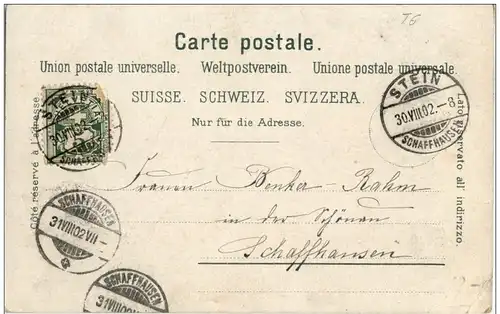 TG
Carte postale.
Union postale universelle. Weltpostverein. Unione postale universale.
SUISSE. SCHWEIZ. SVIZZERA.
Nur für die Adresse.
Côté réservé à l'adresse.
Lato riservato all' indirizzo.
STEIN
30.VIII.02.-8
SCHAFFHAUSEN
STEIN
SCHAFFHAUSEN
Frauen Benker-Rahm
in der Schönau
Schaffhausen
SCHAFFHAUSEN
31.VIII.02.VII-
SCHAFFHAUSEN
31.VIII.02